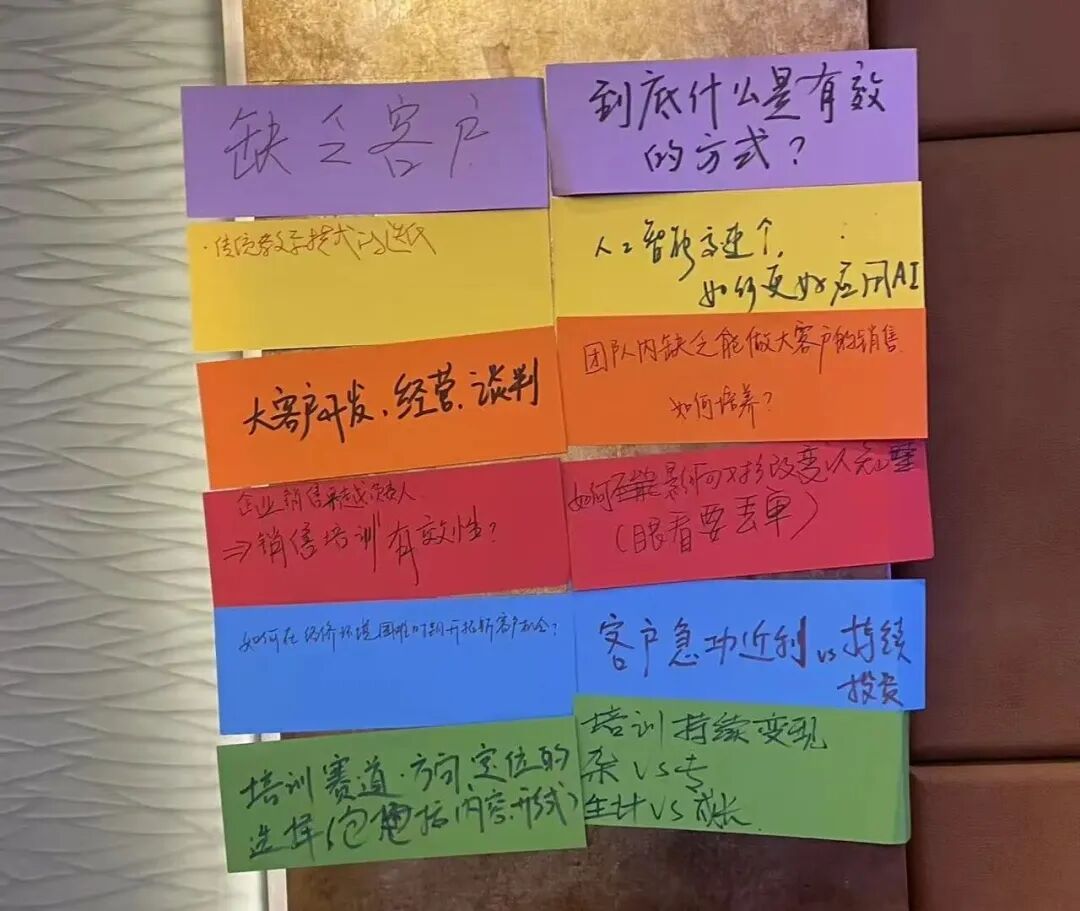 缺乏客户
到底什么是有效
的方式?
·传统教学模式的迭代
人工智能
如何更好应用AI
大客户开发、经营、谈判
团队内缺乏能做大客户的销售
如何培养?
企业销售负责人
⇒销售培训有效性?
如何影响对手改变以
(眼看要丢单)
如何在经济环境困难时期开拓新客户机会?
客户急功近利vs持续
投资
培训赛道、方向、定位的
选择(包括内容、形式)
培训持续变现
杂VS专
生计VS成长